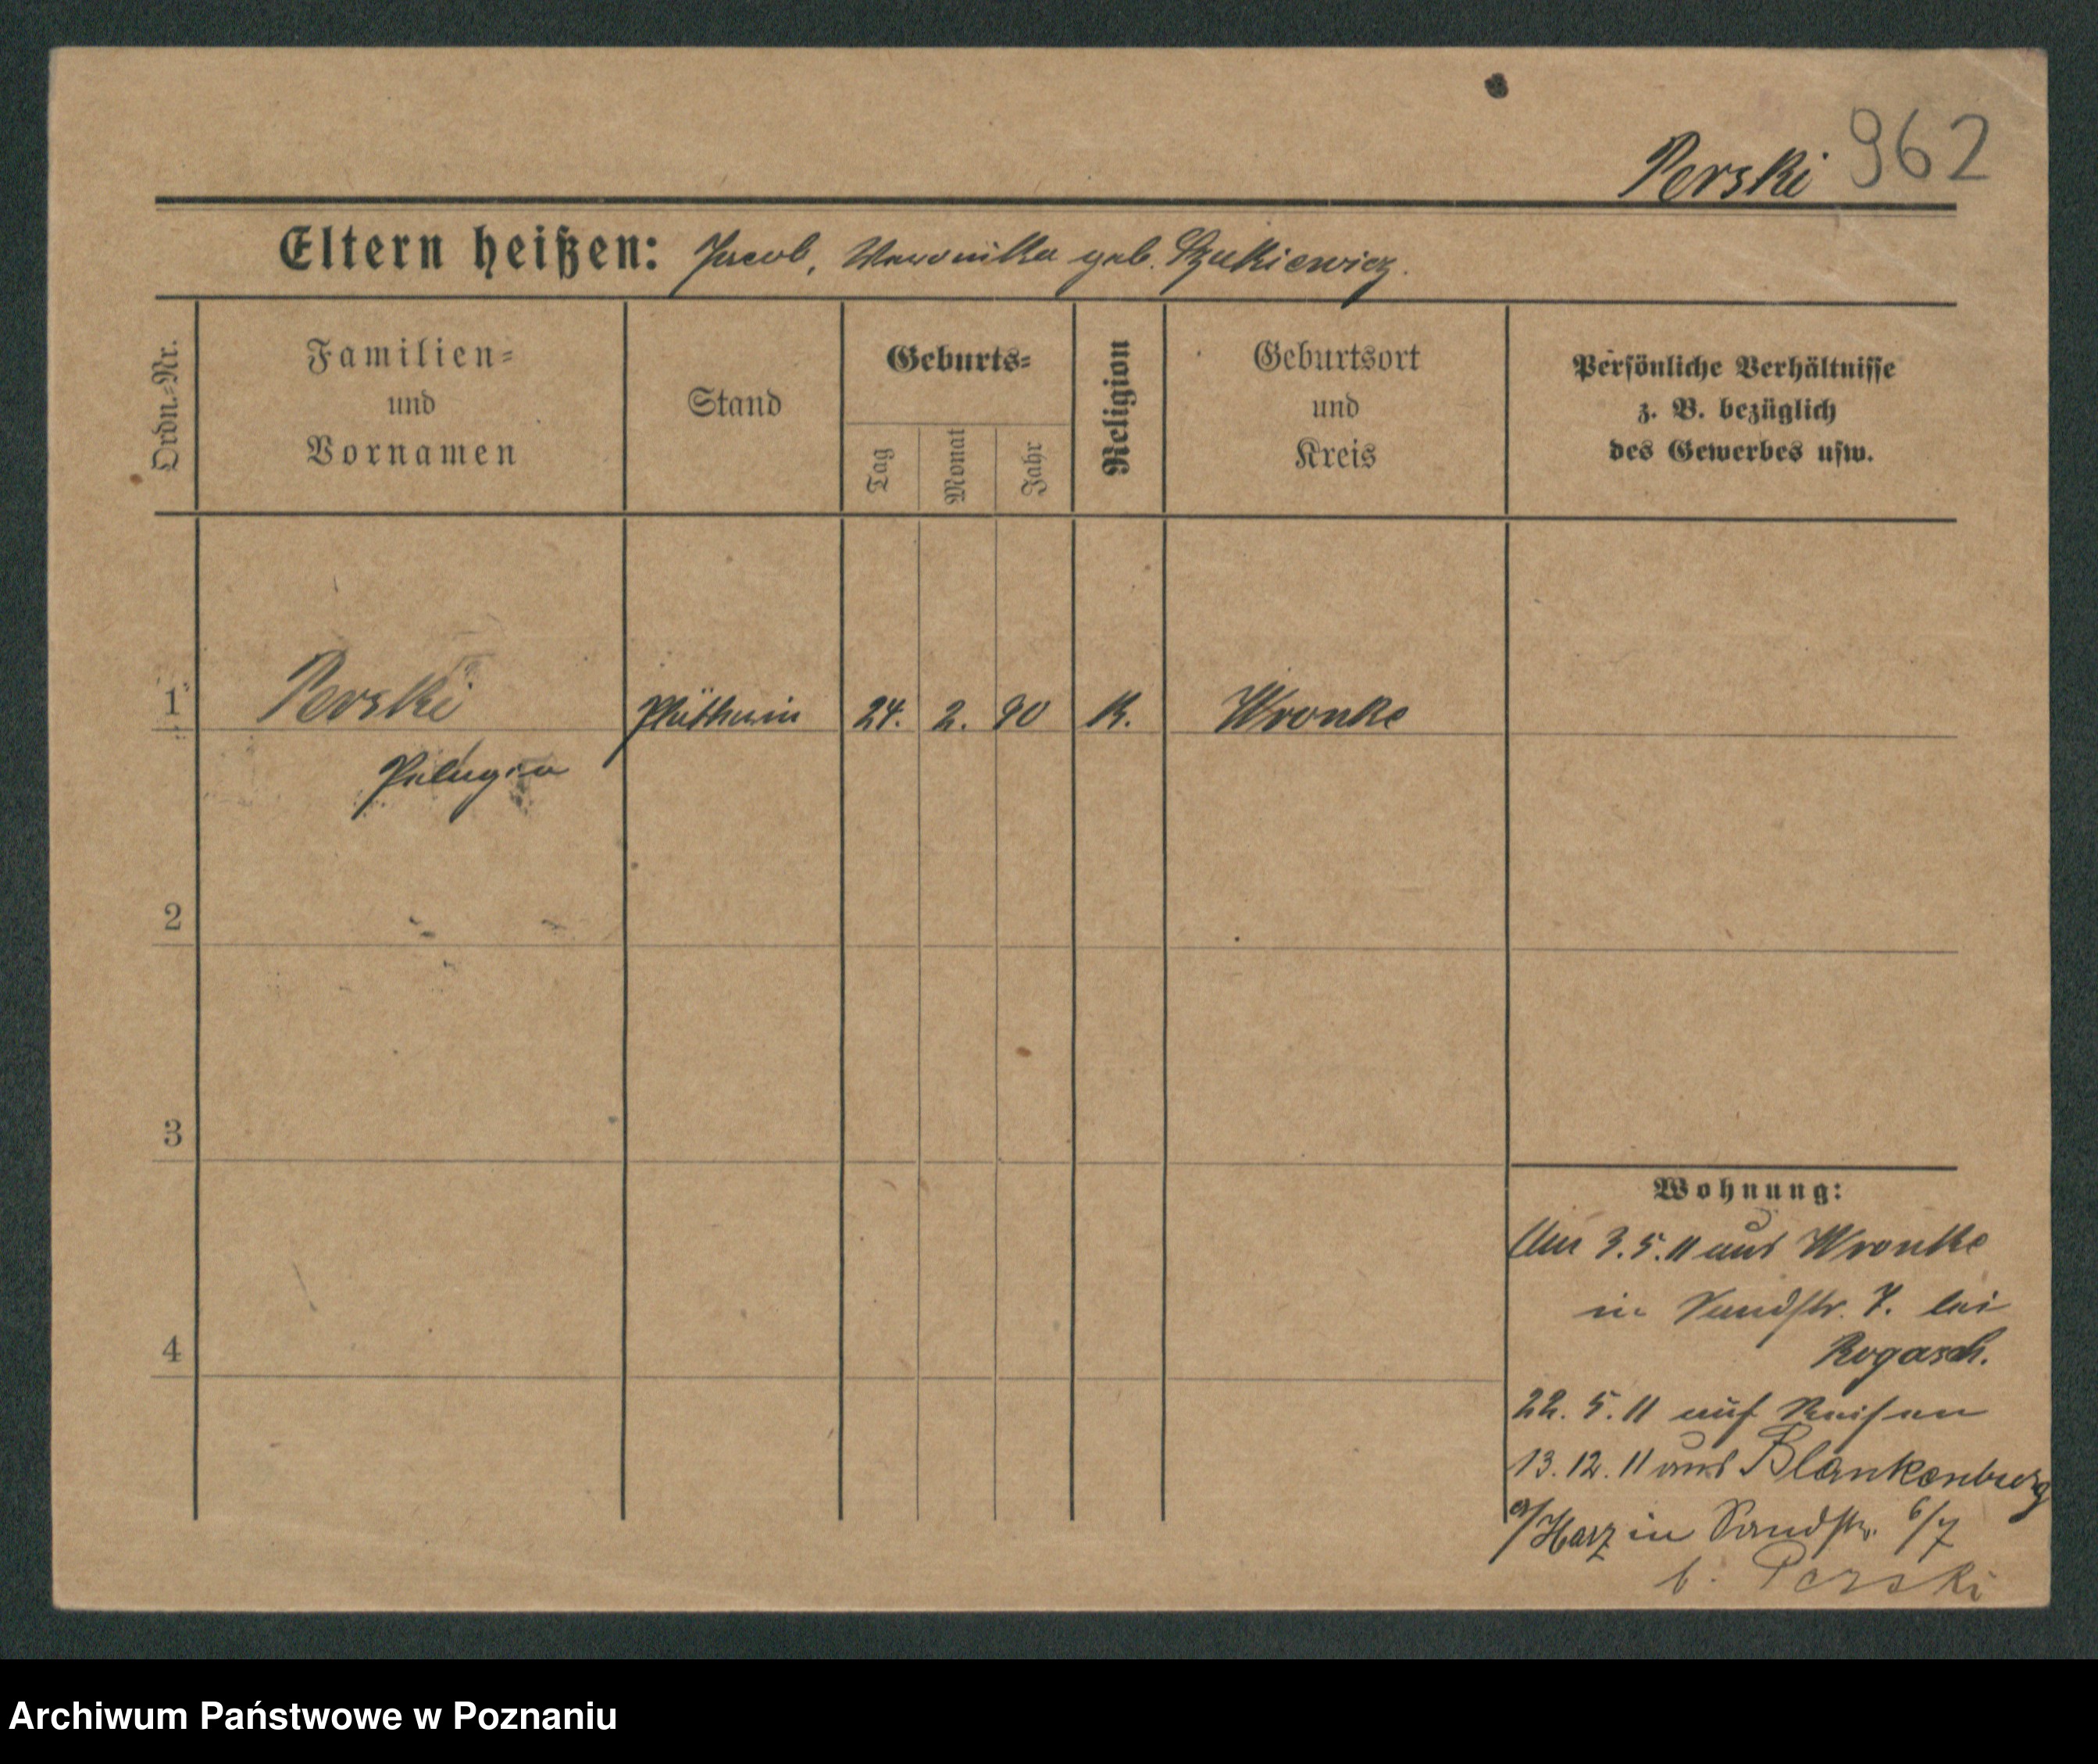 962
Perski
Eltern heißen: Jacob, Weronika geb. Szukiewicz.
Ordn.=Nr.
Familien=
und
Vornamen
Stand
Geburts=
Tag
Monat
Jahr
Religion
Geburtsort
und
Kreis
Persönliche Verhältnisse
z. B. bezüglich
des Gewerbes usw.
1 Perski Plätterin 24. 2. 90 K. Wronke
Pelagia
2
3
4
Wohnung:
Am 3.5.11 aus Wronke
in Sandstr. 7. bei
Rogasch.
22. 5. 11 auf Reisen
13. 12. 11 aus Blankenburg
a/Harz in Sandstr. 6/7
b. Perski
Archiwum Państwowe w Poznaniu